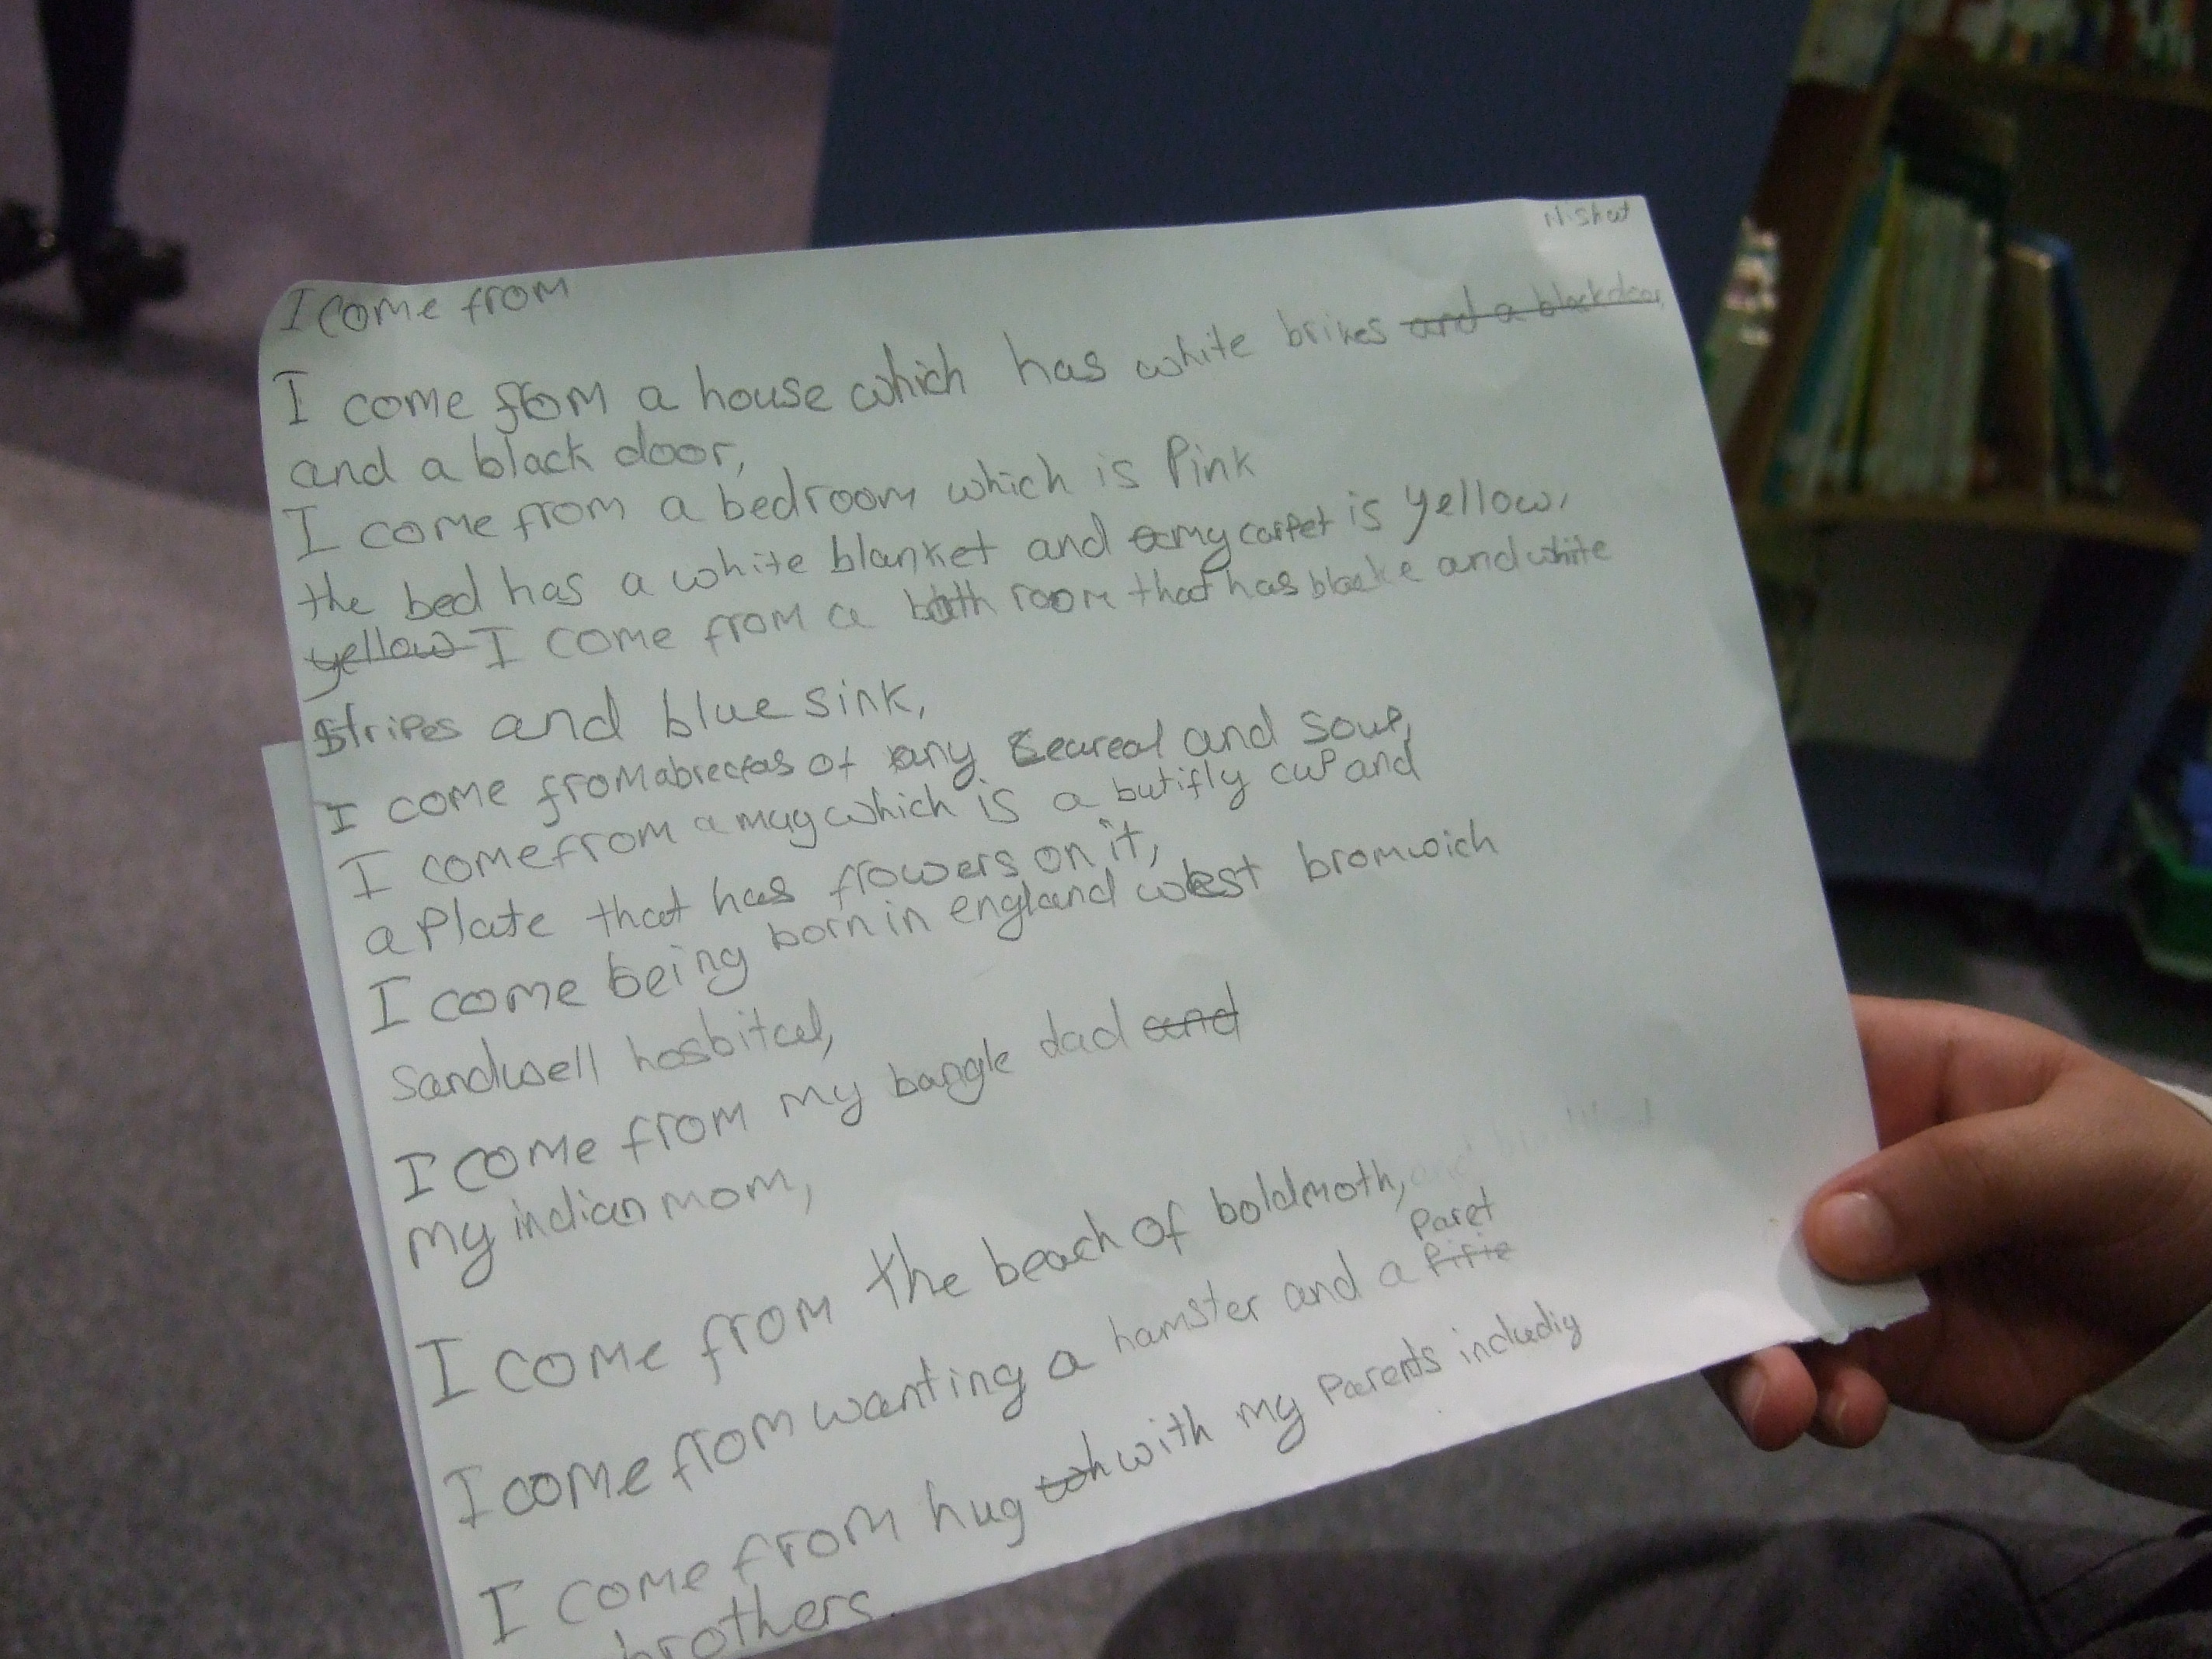 Nishat
I come from
I come from a house which has white brikes and a black door,
and a black door,
I come from a bedroom which is Pink
the bed has a white blanket and my carpet is yellow,
yellow I come from a bath room that has blacke and white
stripes and blue sink,
I come from a brecfas of any ceareal and soup,
I come from a mug which is a butifly cup and
a Plate that has flowers on it,
I come being born in england west bromwich
Sandwell hosbital,
I come from my bangle dad and
my indian mom,
I come from the beach of boldmoth,
Paret
I come from wanting a hamster and a
I come from hug with my Parents includig
brothers.